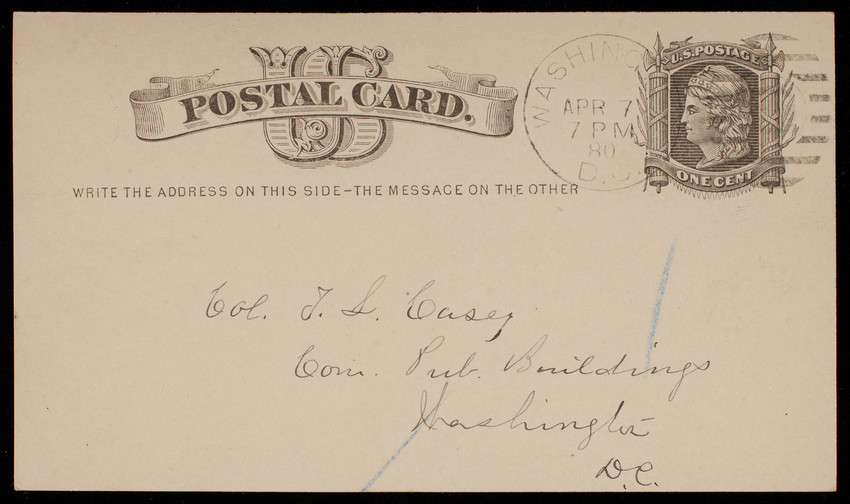 US
POSTAL CARD.
WASHING
APR 7
7 PM
80
D.C.
U.S. POSTAGE
ONE CENT
WRITE THE ADDRESS ON THIS SIDE-THE MESSAGE ON THE OTHER
Col. T. L. Casey
Com. Pub. Buildings
Washington
D.C.